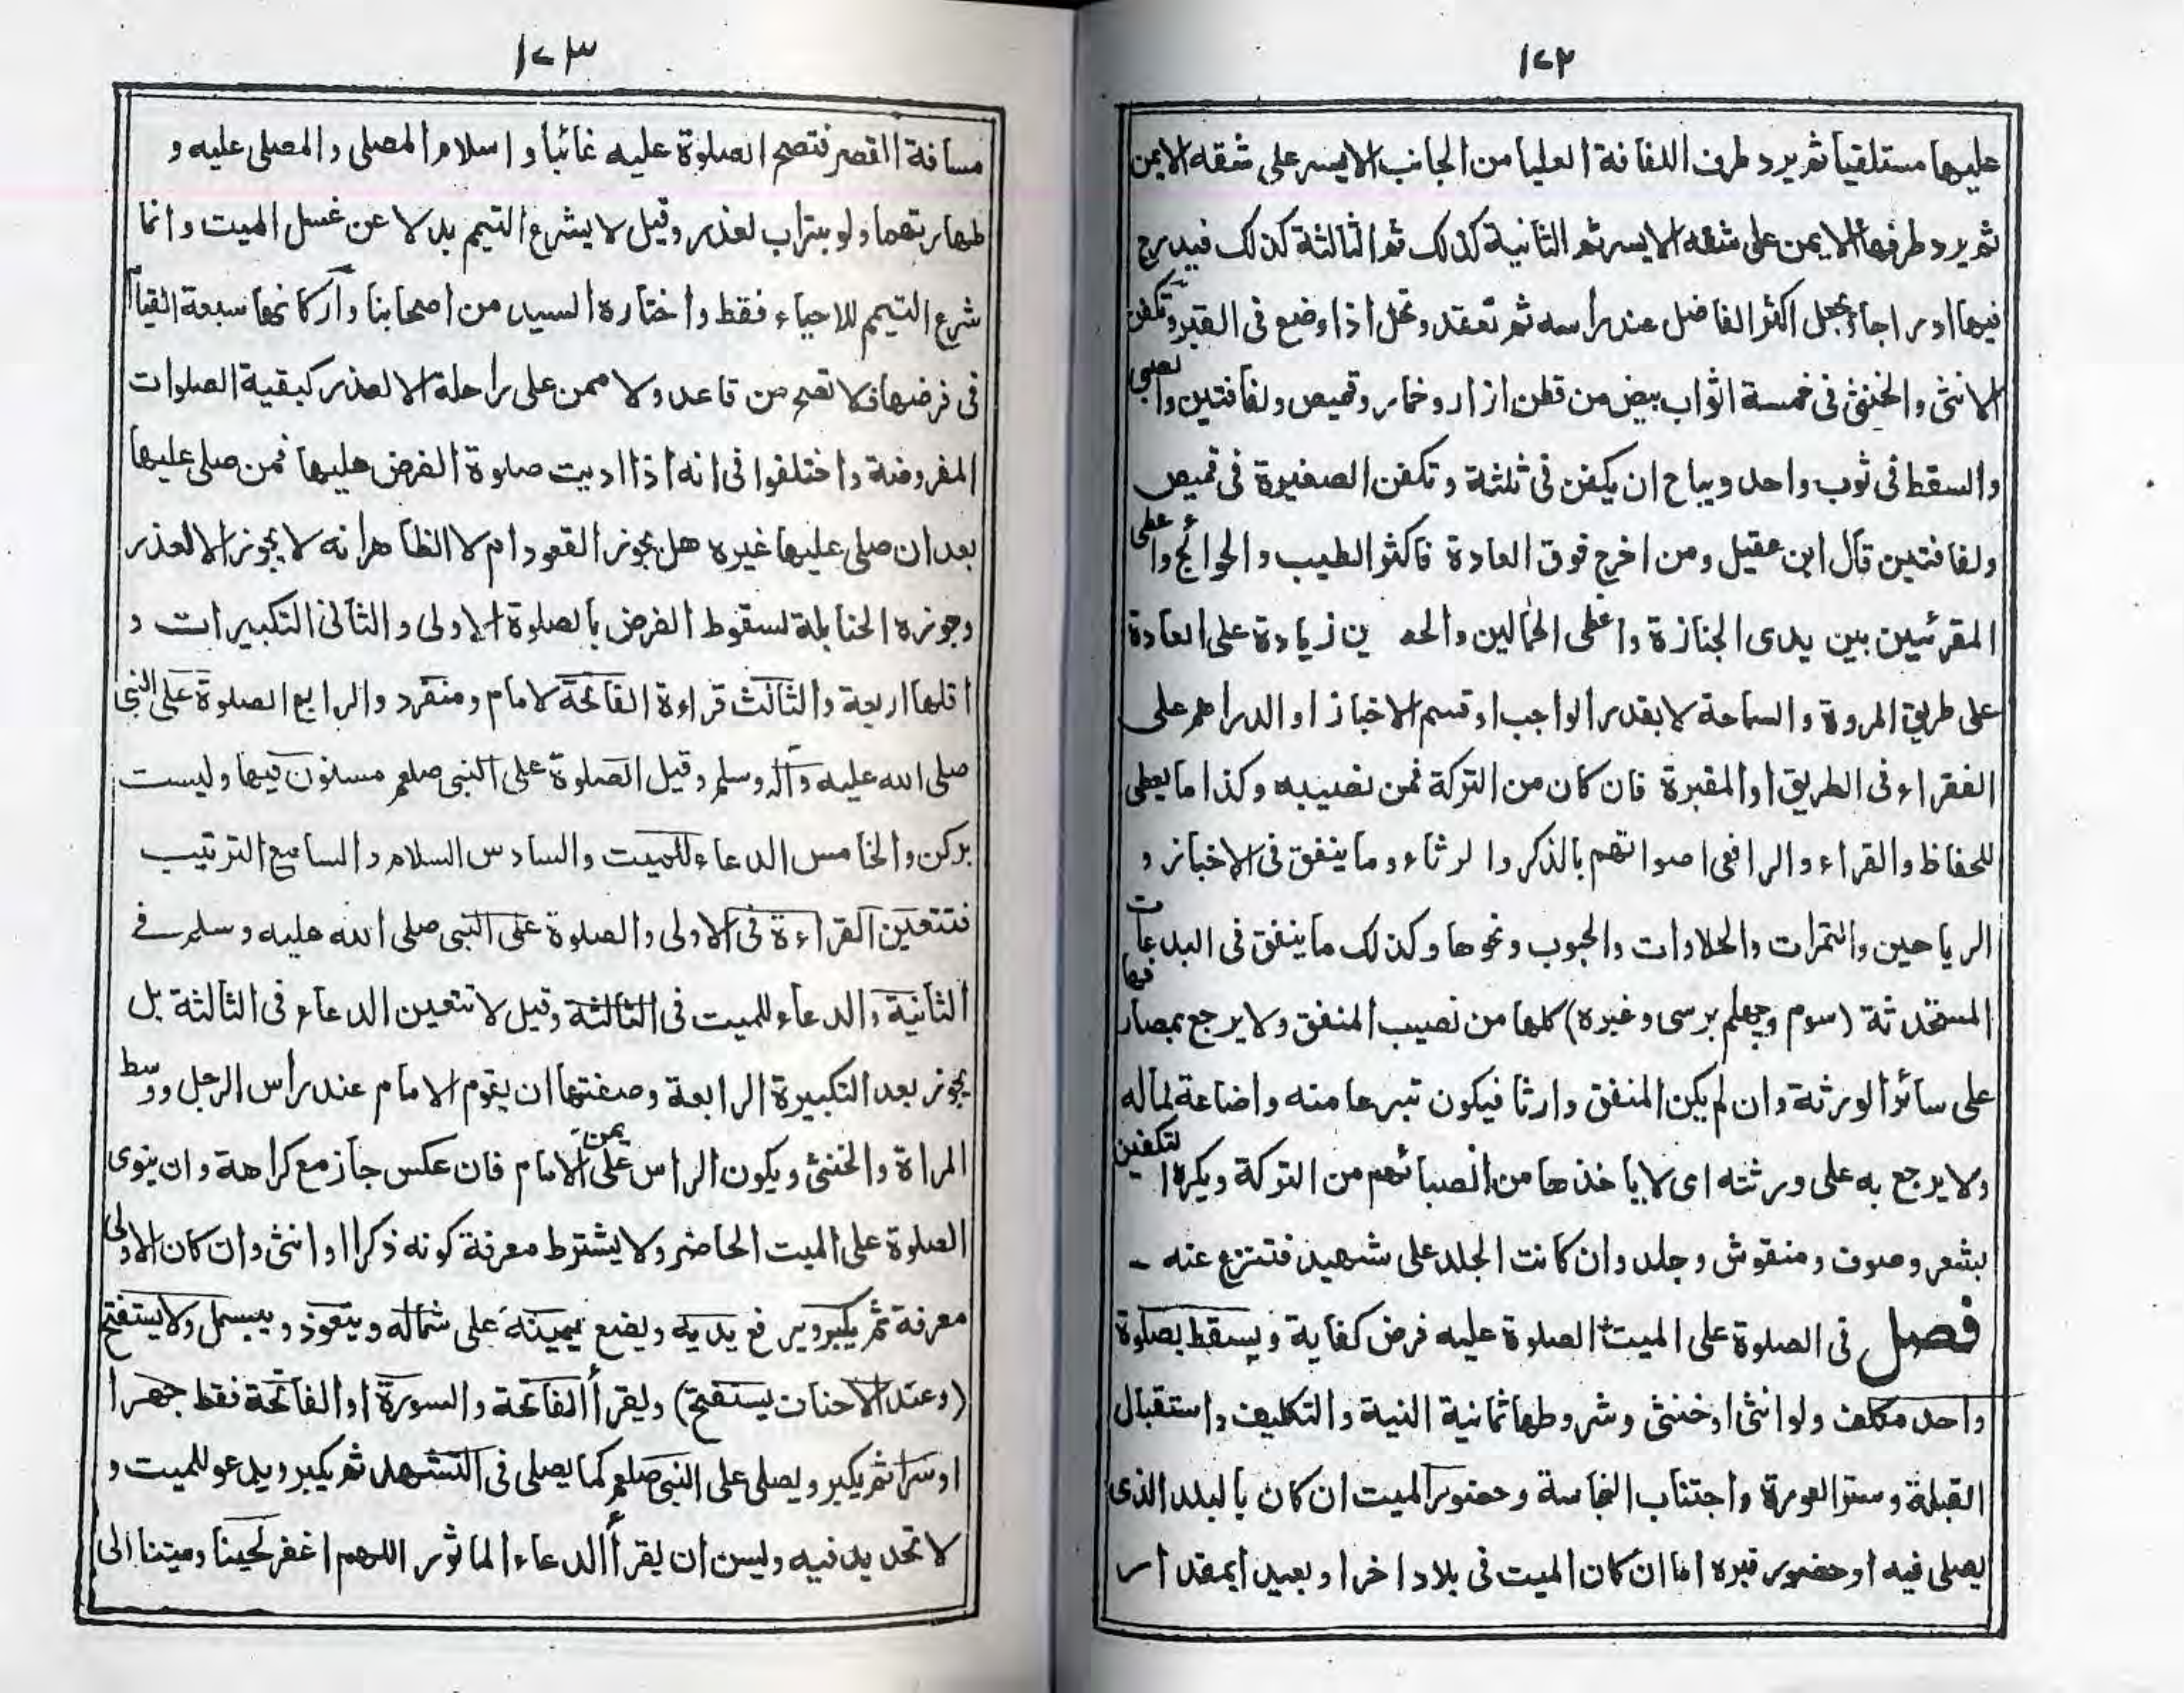 ١٧٢
عليها مستلقيا ثم يرد طرف اللفافة العليا من الجانب الايسر على شقه الايمن
ثم يرد طرفها الايمن على شقه الايسر ثم الثانية كذلك ثم الثالثة كذلك فيدرج
فيها ادراجا ويجعل اكثر الفاضل عند راسه ثم تعقد وتحل اذا وضع فى القبر وتكفن
الانثى والخنثى فى خمسة اثواب بيض من قطن ازار وخمار وقميص ولفافتين والصبى
والسقط فى ثوب واحد ويباح ان يكفن فى ثلثة وتكفن الصغيرة فى قميص
ولفافتين قال ابن عقيل ومن اخرج فوق العادة فاكثر الطيب والحوائج واعطى
المقرئين بين يدى الجنازة واعطى الحمالين والحـ ين زيادة على العادة
على طريق المروة والسماحة لا بقدر الواجب او قسم الاخباز او الدراهم على
الفقراء فى الطريق او المقبرة فان كان من التركة فمن نصيبه وكذا ما يعطى
للحفاظ والقراء والرافعى اصواتهم بالذكر والرثاء وما ينفق فى الاخباز و
الرياحين والتمرات والحلاوات والحبوب ونحوها وكذلك ما ينفق فى البدعات
المستحدثة (سوم وچهلم برسى وغيره) كلها من نصيب المنفق ولا يرجع بمصارفها
على سائر الورثة وان لم يكن المنفق وارثا فيكون تبرعا منه واضاعة لماله
ولا يرجع به على ورثته اى لا ياخذها من انصبائهم من التركة ويكره التكفين
بشعر وصوف ومنقوش وجلد وان كانت الجلد على شهيد فتنزع عنه ـ
فصل فى الصلوة على الميت الصلوة عليه فرض كفاية ويسقط بصلوة
واحد مكلف ولو انثى او خنثى وشروطها ثمانية النية والتكليف واستقبال
القبلة وستر العورة واجتناب النجاسة وحضور الميت ان كان بالبلد الذى
يصلى فيه او حضور قبره اما ان كان الميت فى بلاد اخر او بعيد ا بمقدار
١٧٣
مسافة القصر فتصح الصلوة عليه غائبا واسلام المصلى والمصلى عليه و
طهارتهما ولو بتراب لعذر وقيل لا يشرع التيمم بدلا عن غسل الميت وانما
شرع التيمم للاحياء فقط واختاره السيد من اصحابنا واركانها سبعة القيام
فى فرضها فلا تصح من قاعد ولا ممن على راحلة الا لعذر كبقية الصلوات
المفروضة واختلفوا فى انه اذا اديت صلوة الفرض عليها فمن صلى عليها
بعد ان صلى عليها غيره هل يجوز القعود ام لا الظاهر انه لا يجوز الا لعذر
وجوزه الحنابلة لسقوط الفرض بالصلوة الاولى والثانى التكبيرات و
اقلها اربعة والثالث قراءة الفاتحة لامام ومنفرد والرابع الصلوة على النبى
صلى الله عليه وآله وسلم وقيل الصلوة على النبى صلعم مسنون فيها وليست
بركن والخامس الدعاء للميت والسادس السلام والسابع الترتيب
فتتعين القراءة فى الاولى والصلوة على النبى صلى الله عليه وسلم فى
الثانية والدعاء للميت فى الثالثة وقيل لا تتعين الدعاء فى الثالثة بل
يجوز بعد التكبيرة الرابعة وصفتها ان يقوم الامام عند راس الرجل ووسط
المراة والخنثى ويكون الراس على يمن الامام فان عكس جاز مع كراهة وان ينوى
الصلوة على الميت الحاضر ولا يشترط معرفة كونه ذكرا او انثى وان كان الاولى
معرفة ثم يكبر ويرفع يديه ويضع يمينه على شماله ويتعوذ ويبسمل ولا يستفتح
(وعند الاحناف يستفتح) وليقرأ الفاتحة والسورة او الفاتحة فقط جهرا
او سرا ثم يكبر ويصلى على النبى صلعم كما يصلى فى التشهد ثم يكبر ويدعو للميت و
لا تحديد فيه وليسن ان يقرأ الدعاء الماثور اللهم اغفر لحينا وميتنا الى